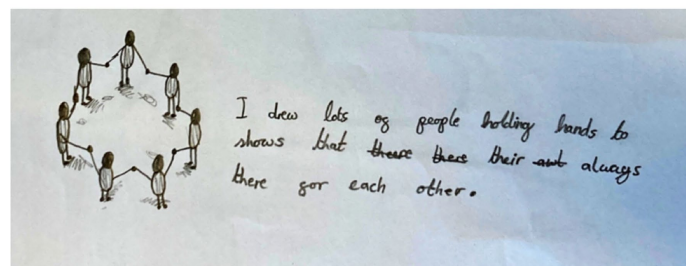 I drew lots of people holding hands to
shows that there there their and always
there for each other.